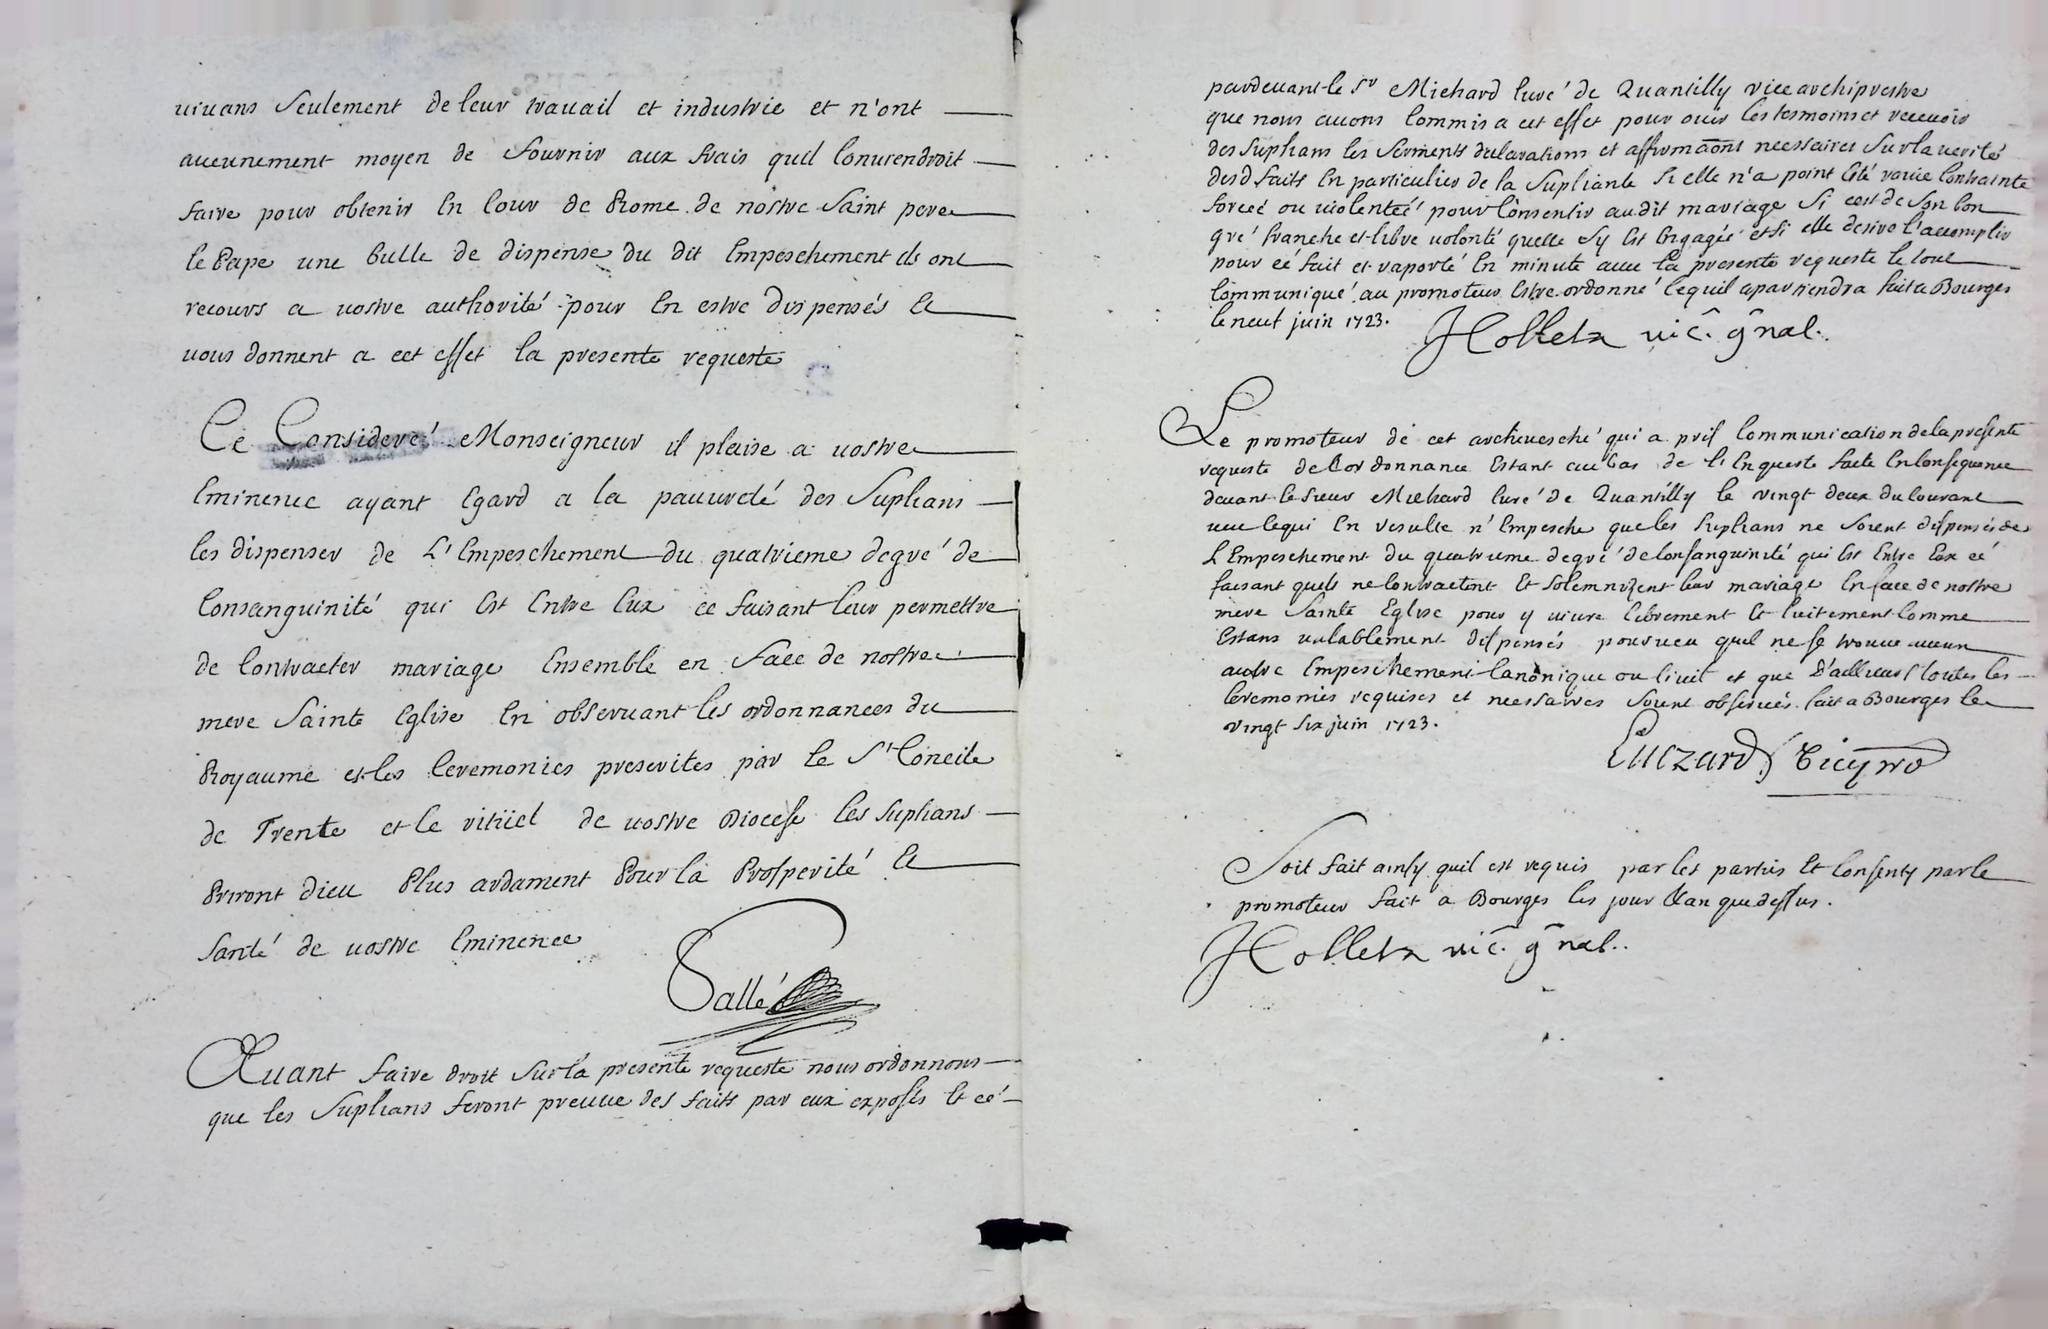 vivans Seulement de leur travail et industrie et n'ont
aucunement moyen de fournir aux frais quil Conviendroit
faire pour obtenir En Cour de Rome de nostre Saint pere
le Pape une bulle de dispense du dit Empeschement ils ont
recours a vostre authorité pour En estre dispensés Et
vous donnent a cet effet la presente requeste
Ce Consideré Monseigneur il plaise a vostre
Eminence ayant Egard a la pauvreté des Suplians
les dispenser de L'Empeschement du quatrieme degré de
Consanguinité qui Est Entre Eux ce faisant leur permettre
de Contracter mariage Ensemble en face de nostre
mere Sainte Eglise En observant les ordonnances du
Royaume et les Ceremonies prescrites par le St Concile
de Trente et le ritüel de vostre Diocese les Suplians
Priront Dieu Plus ardament Pour la Prosperité Et
Santé de vostre Eminence
Sallé
Avant faire droit Sur la presente requeste nous ordonnons
que les Suplians feront preuve des faits par eux exposés Et cé
pardevant le Sr Michard Curé de Quantilly vice archiprestre
que nous avons Commis a cet effet pour ouir les tesmoins et recevoir
des Suplians les Serments declarations et affirmaõns necessaires Sur la verité
desd faits En particulier de la Supliante Si elle n'a point Esté ravie Contrainte
forceé ou violenteé pour Consentir audit mariage Si cest de Son bon
gré franche et libre volonté quelle Sy Est Engagéé et Si elle desire l'accomplir
pour cé fait et raporté En minute avec la presente requeste le tout
Communiqué au promoteur Estre ordonné Cequil apartiendra fait a Bourges
le neuf juin 1723.
Holletz vic. gñal.
Le promoteur de cet archevesché qui a pris Communication de la presente
requeste de Lordonnance Estant au bas de l'Enqueste faite En Consequence
devant le Sieur Michard Curé de Quantilly le vingt deux du Courant
veu Cequi En resulte n'Empesche que les Suplians ne Soient dispensés de
L'Empeschement du quatrieme degré de Consanguinité qui Est Entre Eux cé
faisant quils ne Contractent Et Solemnizent leur mariage En face de nostre
mere Sainte Eglise pour y vivre librement Et licitement Comme
Estans valablement dispensés pourveu quil ne Se trouve aucun
autre Empeschement Canonique ou Civil et que D'ailleurs toutes les
Ceremonies requises et necessaires Soient observés. fait a Bourges le
vingt Six juin 1723.
Soit fait ainsy quil est requis par les parties Et Consenty par le
promoteur fait a Bourges les jour Et an que dessus.
Holletz vic. gñal..